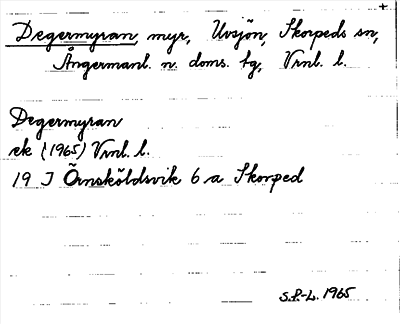 Degermyran, myr, Uvsjön, Skorpeds sn,
Ångermanl. n. doms. tg, Vrnl. l.
Degermyran
ek (1965) Vrnl. l.
19 J Örnsköldsvik 6 a Skorped
S.P.-L. 1965